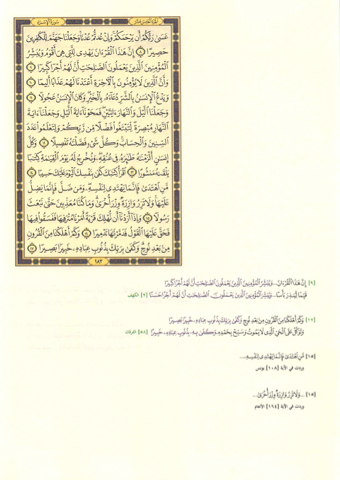 عَسَىٰ رَبُّكُمْ أَن يَرْحَمَكُمْ وَإِنْ عُدتُّمْ عُدْنَا وَجَعَلْنَا جَهَنَّمَ لِلْكَٰفِرِينَ
حَصِيرًا ٨ إِنَّ هَٰذَا الْقُرْءَانَ يَهْدِى لِلَّتِى هِىَ أَقْوَمُ وَيُبَشِّرُ
الْمُؤْمِنِينَ الَّذِينَ يَعْمَلُونَ الصَّٰلِحَٰتِ أَنَّ لَهُمْ أَجْرًا كَبِيرًا ٩
وَأَنَّ الَّذِينَ لَا يُؤْمِنُونَ بِالْءَاخِرَةِ أَعْتَدْنَا لَهُمْ عَذَابًا أَلِيمًا ١٠
وَيَدْعُ الْإِنسَٰنُ بِالشَّرِّ دُعَآءَهُۥ بِالْخَيْرِ وَكَانَ الْإِنسَٰنُ عَجُولًا ١١
وَجَعَلْنَا الَّيْلَ وَالنَّهَارَ ءَايَتَيْنِ فَمَحَوْنَآ ءَايَةَ الَّيْلِ وَجَعَلْنَآ ءَايَةَ
النَّهَارِ مُبْصِرَةً لِّتَبْتَغُوا۟ فَضْلًا مِّن رَّبِّكُمْ وَلِتَعْلَمُوا۟ عَدَدَ
السِّنِينَ وَالْحِسَابَ وَكُلَّ شَىْءٍ فَصَّلْنَٰهُ تَفْصِيلًا ١٢ وَكُلَّ
إِنسَٰنٍ أَلْزَمْنَٰهُ طَٰٓئِرَهُۥ فِى عُنُقِهِۦ وَنُخْرِجُ لَهُۥ يَوْمَ الْقِيَٰمَةِ كِتَٰبًا
يَلْقَىٰهُ مَنشُورًا ١٣ اقْرَأْ كِتَٰبَكَ كَفَىٰ بِنَفْسِكَ الْيَوْمَ عَلَيْكَ حَسِيبًا ١٤
مَّنِ اهْتَدَىٰ فَإِنَّمَا يَهْتَدِى لِنَفْسِهِۦ وَمَن ضَلَّ فَإِنَّمَا يَضِلُّ
عَلَيْهَا وَلَا تَزِرُ وَازِرَةٌ وِزْرَ أُخْرَىٰ وَمَا كُنَّا مُعَذِّبِينَ حَتَّىٰ نَبْعَثَ
رَسُولًا ١٥ وَإِذَآ أَرَدْنَآ أَن نُّهْلِكَ قَرْيَةً أَمَرْنَا مُتْرَفِيهَا فَفَسَقُوا۟ فِيهَا
فَحَقَّ عَلَيْهَا الْقَوْلُ فَدَمَّرْنَٰهَا تَدْمِيرًا ١٦ وَكَمْ أَهْلَكْنَا مِنَ الْقُرُونِ
مِنۢ بَعْدِ نُوحٍ وَكَفَىٰ بِرَبِّكَ بِذُنُوبِ عِبَادِهِۦ خَبِيرًۢا بَصِيرًا ١٧
٢٨٣
[٩] إِنَّ هَٰذَا الْقُرْءَانَ... وَيُبَشِّرُ الْمُؤْمِنِينَ الَّذِينَ يَعْمَلُونَ الصَّٰلِحَٰتِ أَنَّ لَهُمْ أَجْرًا كَبِيرًا
قَيِّمًا لِّيُنذِرَ بَأْسًا... وَيُبَشِّرَ الْمُؤْمِنِينَ الَّذِينَ يَعْمَلُونَ الصَّٰلِحَٰتِ أَنَّ لَهُمْ أَجْرًا حَسَنًا [٢] الكهف
[١٧] وَكَمْ أَهْلَكْنَا مِنَ الْقُرُونِ مِنۢ بَعْدِ نُوحٍ وَكَفَىٰ بِرَبِّكَ بِذُنُوبِ عِبَادِهِۦ خَبِيرًۢا بَصِيرًا
وَتَوَكَّلْ عَلَى الْحَىِّ الَّذِى لَا يَمُوتُ وَسَبِّحْ بِحَمْدِهِۦ وَكَفَىٰ بِهِۦ بِذُنُوبِ عِبَادِهِۦ خَبِيرًا [٥٨] الفرقان
[١٥] مَّنِ اهْتَدَىٰ فَإِنَّمَا يَهْتَدِى لِنَفْسِهِۦ...
وردت في الآية [١٠٨] يونس
[١٥] ...وَلَا تَزِرُ وَازِرَةٌ وِزْرَ أُخْرَىٰ...
وردت في الآية [١٦٤] الأنعام